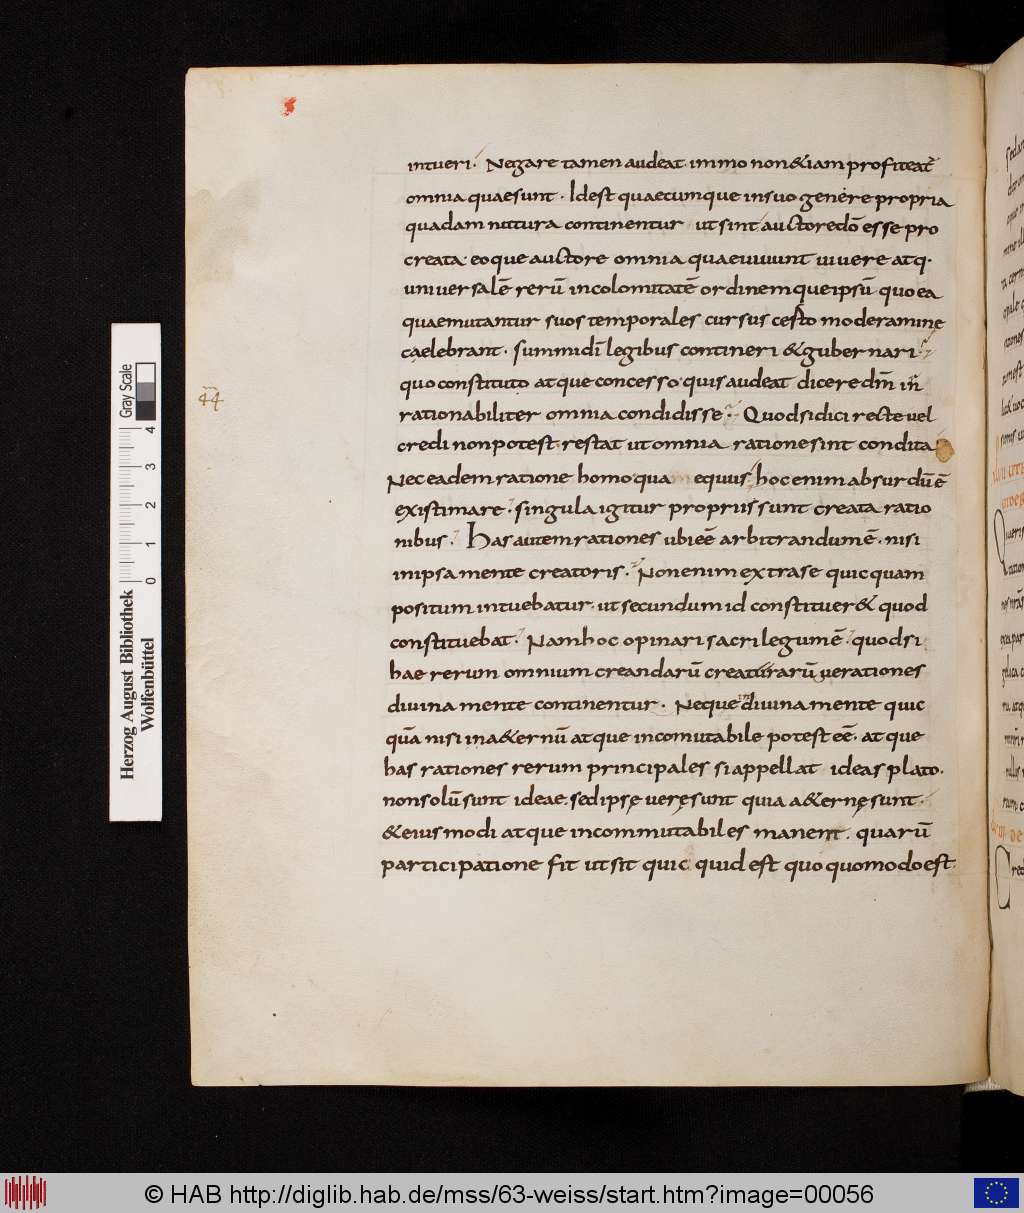 intueri. Negare tamen audeat immo non &iam profiteat̃
omnia quaesunt. Idest quaecumque insuo genere propria
quadam natura continentur ut sint auctoredō esse pro
creata. eoque auctore omnia quaeuiuunt uiuere atq·
uniuersalē rerū incolomitatē ordinemqueipsū quo ea
quaemutantur suos temporales cursus certo moderamine
caelebrant. summidī legibus contineri &gubernari·
quo constituto atque concesso quis audeat dicere dm̄ in̄
rationabiliter omnia condidisse. Quodsidici recte uel
credi nonpotest. restat ut omnia ratione sint condita
Nec eadem ratione homo qua equus. hoc enim absurdū ē
existimare. singula igitur propriis sunt creata ratio
nibus. Has autem rationes ubi eē arbitrandum ē. nisi
inipsa mente creatoris. Non enim extra se quicquam
positum intuebatur. ut secundum id constituer& quod
constituebat. Nam hoc opinari sacrilegum ē. quodsi
hae rerum omnium creandarū creaturarū ue rationes
diuina mente continentur. Neque in diuina mente quic
quā nisi in a&ernū atque incomutabile potest eē. atque
has rationes rerum principales si appellat ideas plato.
non solū sunt ideae. sed ipsę uerę sunt quia a&ernę sunt.
&eiusmodi atque incommutabiles manent. quarū
participatione fit ut sit quic quid est quo quomodo est.
44
Herzog August Bibliothek
Wolfenbüttel
Gray Scale
0 1 2 3 4
© HAB http://diglib.hab.de/mss/63-weiss/start.htm?image=00056